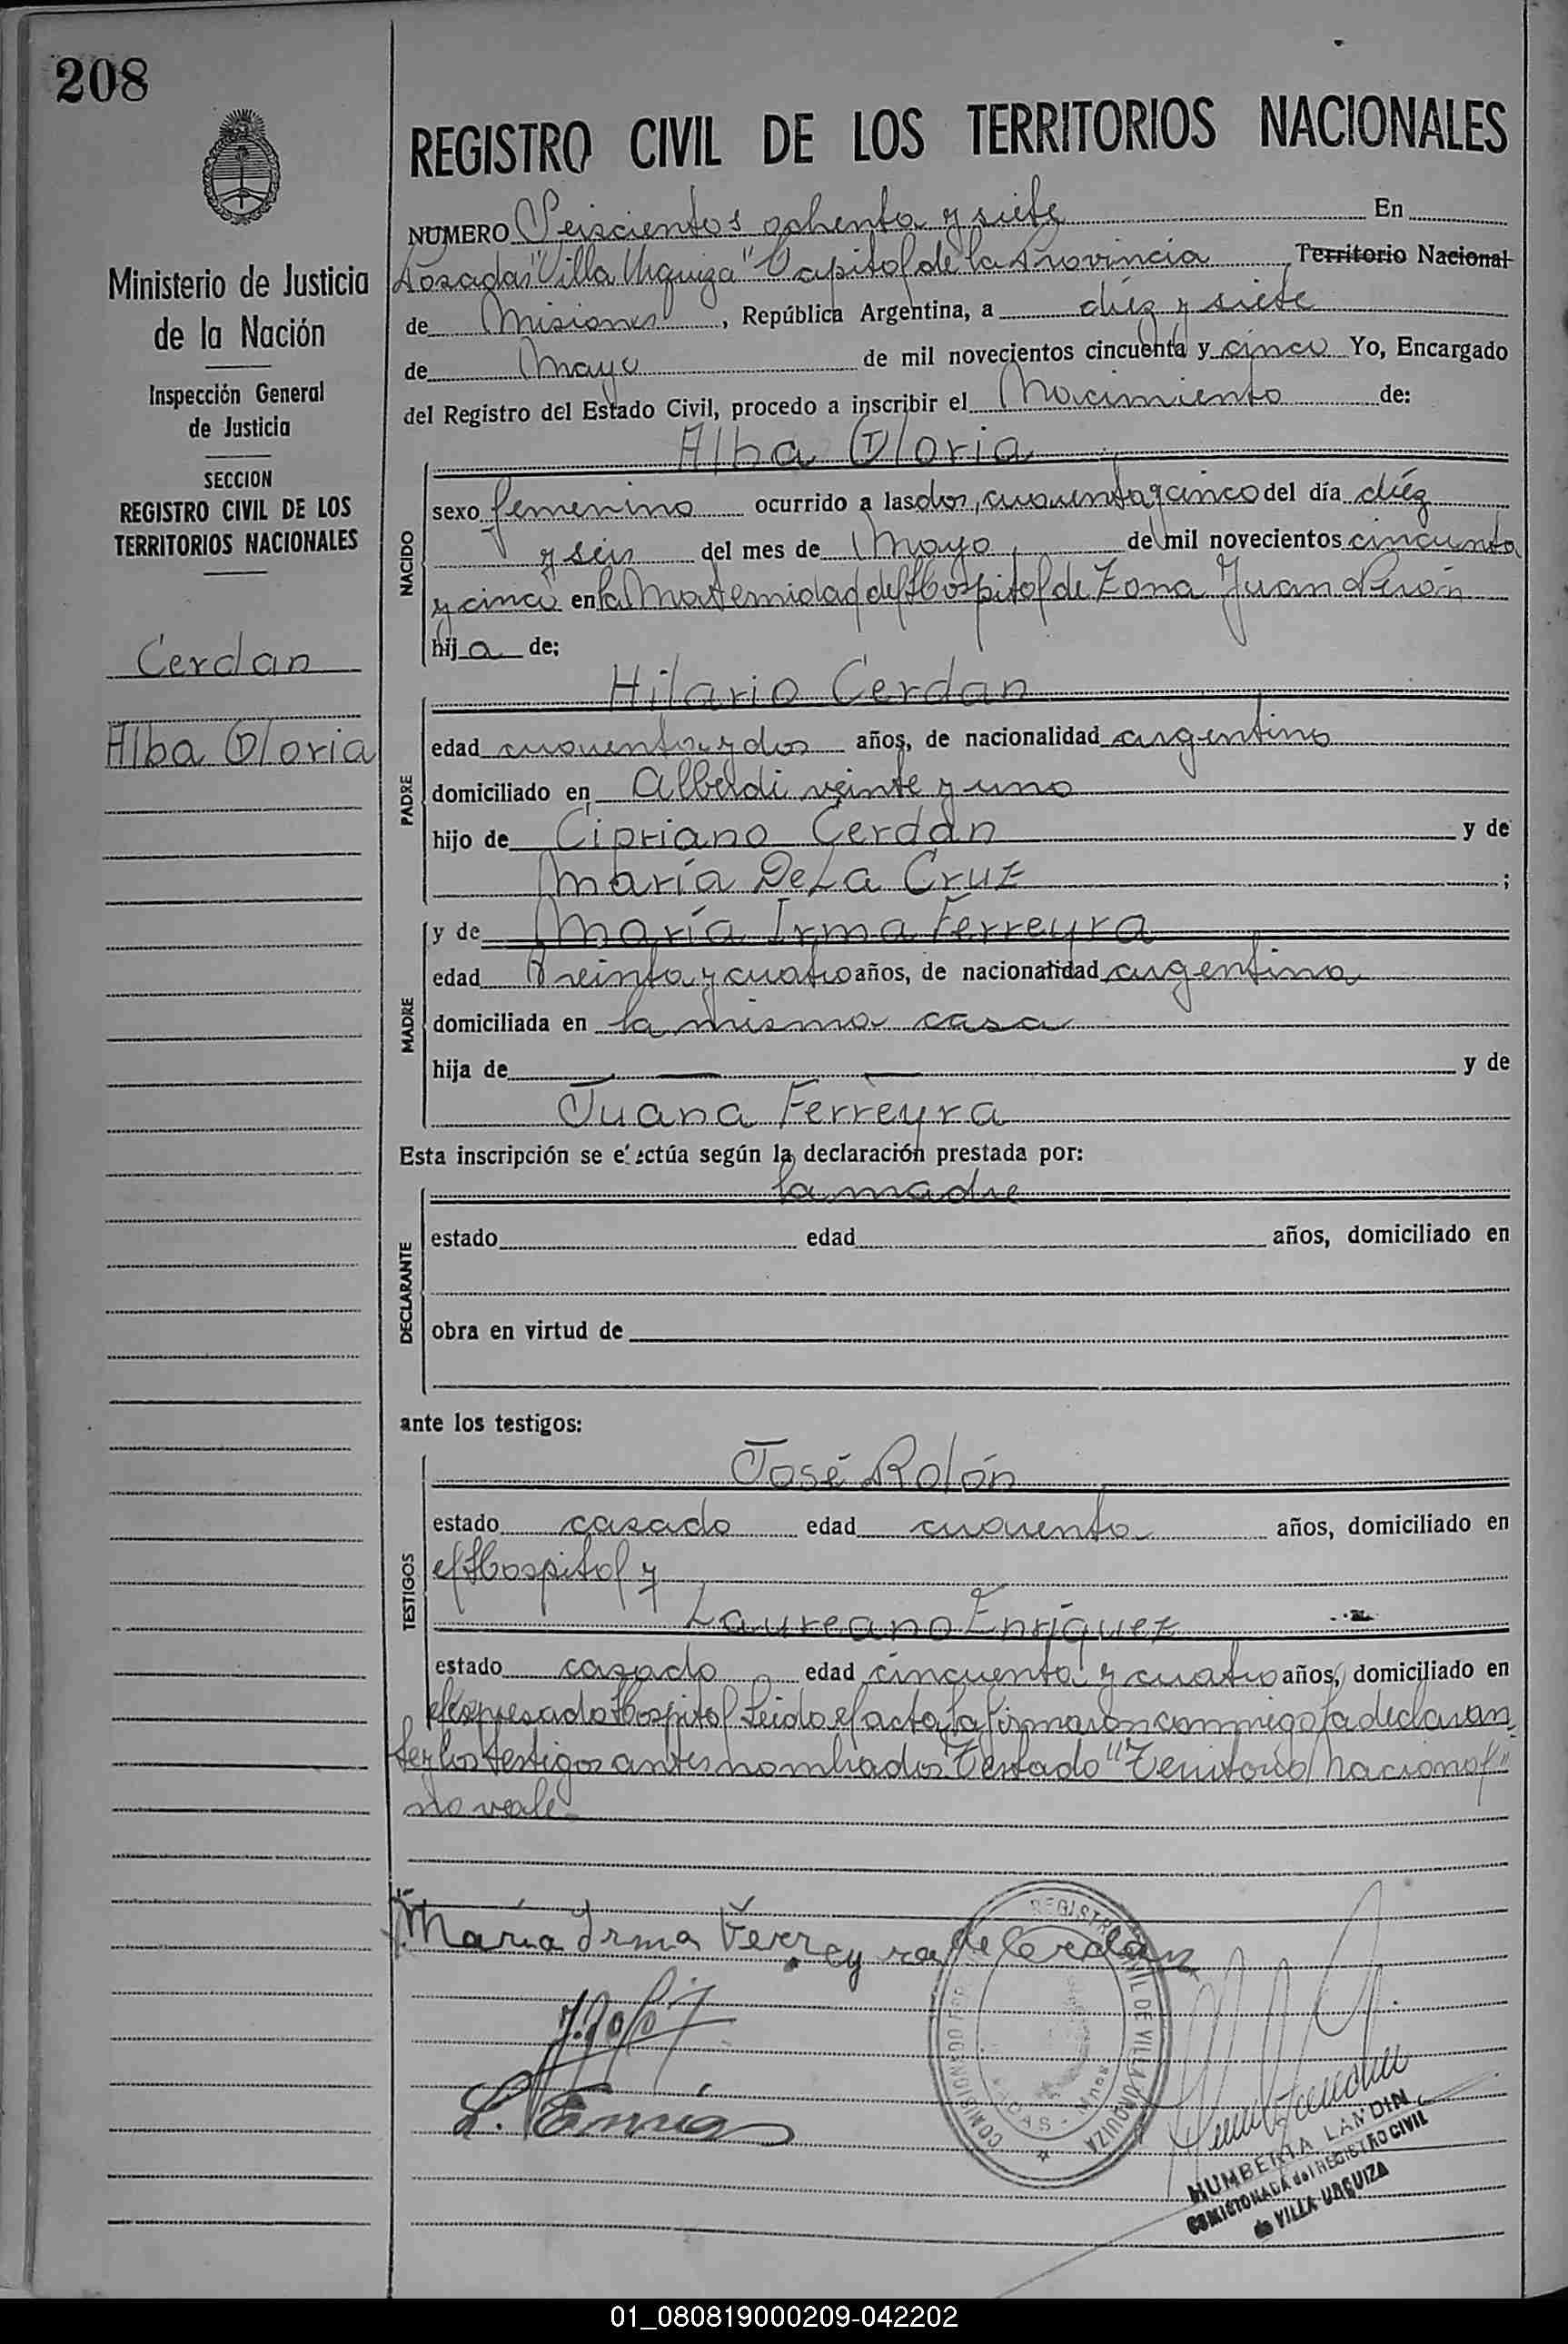 208
REGISTRO CIVIL DE LOS TERRITORIOS NACIONALES
Ministerio de Justicia
de la Nación
Inspección General
de Justicia
SECCION
REGISTRO CIVIL DE LOS
TERRITORIOS NACIONALES
Cerdan
Alba Gloria
NUMERO Seiscientos ochenta y siete En
Posadas "Villa Urquiza" Capital de la Provincia Territorio Nacional
de Misiones, República Argentina, a diéz y siete
de Mayo de mil novecientos cincuenta y cinco Yo, Encargado
del Registro del Estado Civil, procedo a inscribir el Nacimiento de:
Alba Gloria
NACIDO
sexo femenino ocurrido a las dos, cuarenta y cinco del día diéz
y seis del mes de Mayo de mil novecientos cincuenta
y cinco en la Maternidad del Hospital de Zona Juan Perón
hija de:
PADRE
Hilario Cerdan
edad cuarenta y dos años, de nacionalidad argentino
domiciliado en Alberdi veinte y uno
hijo de Cipriano Cerdán y de
María De La Cruz ;
MADRE
y de María Irma Ferreyra
edad treinta y cuatro años, de nacionalidad argentina
domiciliada en la misma casa
hija de — — y de
Juana Ferreyra
Esta inscripción se efectúa según la declaración prestada por:
DECLARANTE
la madre
estado edad años, domiciliado en
obra en virtud de
ante los testigos:
TESTIGOS
José Rolón
estado casado edad cuarenta años, domiciliado en
el Hospital y
Laureano Enríquez
estado casado edad cincuenta y cuatro años, domiciliado en
el expresado Hospital Leido el acta, la firmaron conmigo la declaran
te y los testigos antes nombrados Testado "Territorio Nacional"
no vale-
María Irma Ferreyra de Cerdán
REGISTRO CIVIL DE VILLA URQUIZA
HUMBERTA LANDIN
COMISIONADA del REGISTRO CIVIL
de VILLA URQUIZA
01_080819000209-042202